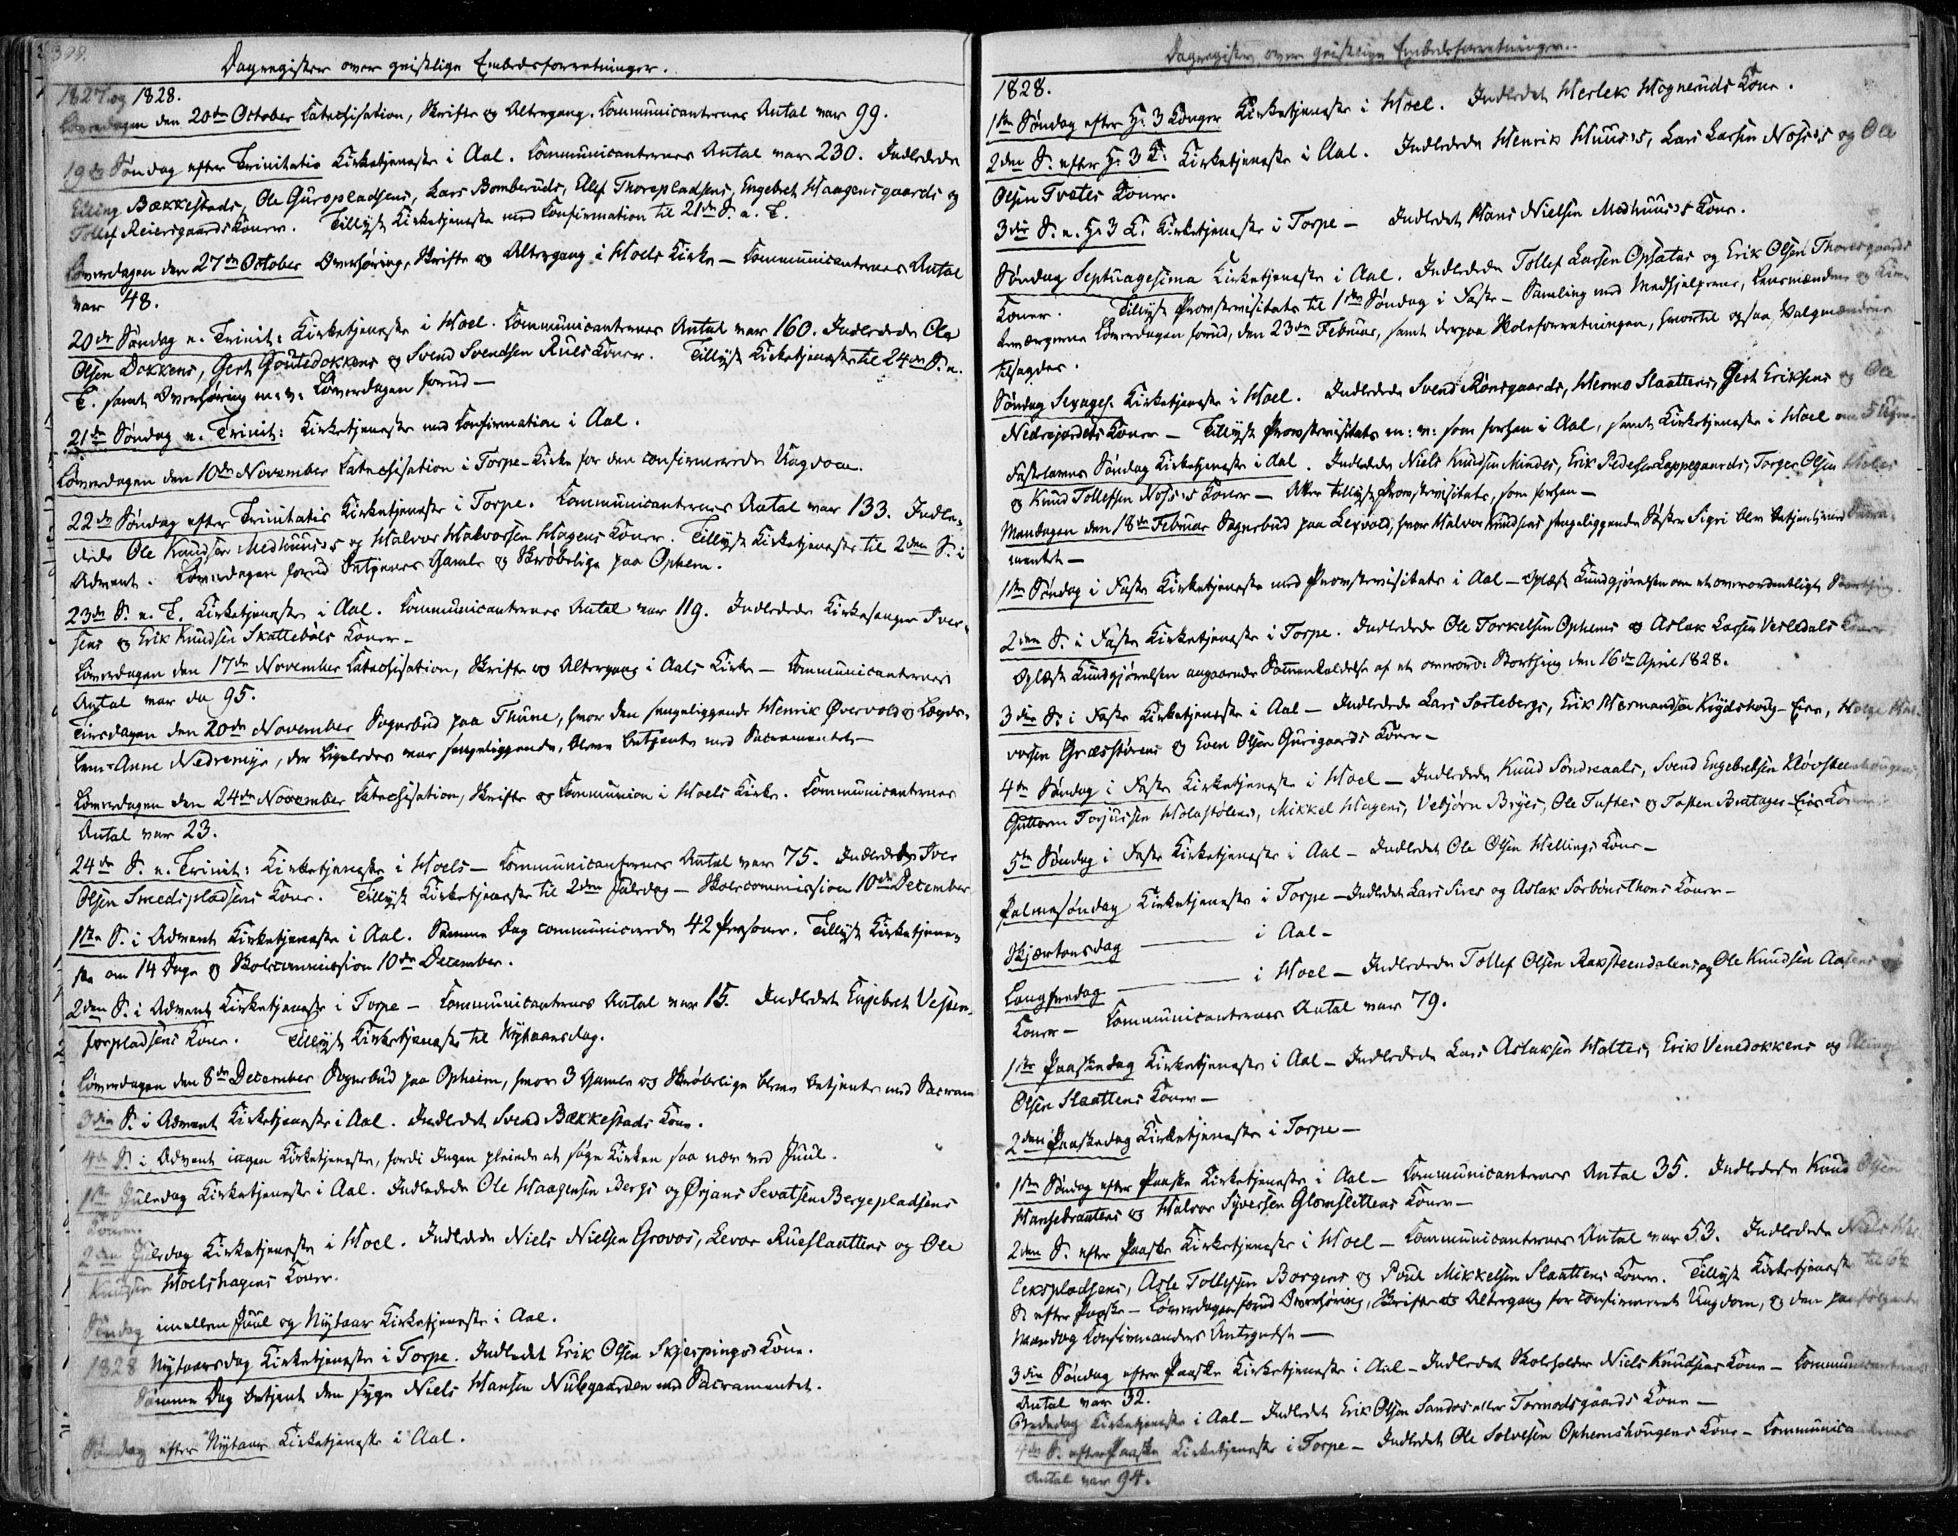 398.
Dagregister over geistlige Embedsforretninger.
1827 og 1828.
Løverdagen den 20de October Catechisation, Skrifte og Altergang. Communicanternes Antal var 99.
19de Søndag efter Trinitatis Kirketjeneste i Aal. Communicanternes Antal var 230. Indledede
Elling Bækkestads, Ole Guropladsens, Lars Bomberuds, Elef Thorepladsens, Engebret Haagensgaards og
Tollef Reiersgaards Koner. Tillyst Kirketjeneste med Confirmation til 21de S. e. T.
Løverdagen den 27de October Overhøring, Skrifte og Altergang i Hoels Kirke – Communicanternes Antal
var 48.
20de Søndag e. Trinit: Kirketjeneste i Hoel. Communicanternes Antal var 160. Indledede Ole
Olsen Dokkens, Gert Goutedokkens og Svend Svendsen Ruls Koner. Tillyst Kirketjeneste til 24de S. e.
T. samt Overhøring m: v: Løverdagen forud –
21de Søndag e. Trinit: Kirketjeneste med Confirmation i Aal.
Løverdagen den 10de November Catechisation i Torpe-Kirke for den confirmerede Ungdom.
22de Søndag efter Trinitatis Kirketjeneste i Torpe. Communicanternes Antal var 133. Indle-
dede Ole Knudsen Medhuus's og Halvor Halvorsen Hagens Koner. Tillyst Kirketjeneste til 2den S. i
Advent. Løverdagen forud betjenes Gamle og Skrøbelige paa Ophem.
23de S. e. T. Kirketjeneste i Aal. Communicanternes Antal var 119. Indledede Kirkesanger Iver-
sens og Erik Knudsen Skattebøls Koner –
Løverdagen den 17de November Catechisation, Skrifte og Altergang i Aals Kirke – Communicanternes
Antal var da 95.
Tirsdagen den 20de November Sognebud paa Thune, hvor den sengeliggende Henrik Øvervold og Lægds-
lem Anne Nedremyr, der ligeledes var sengeliggende, bleve betjente med Sacramentet –
Løverdagen den 24de November Catechisation, Skrifte og Communion i Hoels Kirke. Communicanternes
Antal var 23.
24de S. e. Trinit: Kirketjeneste i Hoels – Communicanternes Antal var 75. Indledet Iver
Olsen Smedspladsens Kone. Tillyst Kirketjeneste til 2den Juledag – Skolecommission 10de December
1ste S. i Advent Kirketjeneste i Aal. Samme Dag communicerede 42 Personer. Tillyst Kirketjene-
ste om 14 Dage og Skolecommission 10de December.
2den S. i Advent Kirketjeneste i Torpe – Communicanternes Antal var 15. Indledet Engebret Vesten-
forpladsens Kone. Tillyst Kirketjeneste til Nytaarsdag.
Løverdagen den 8de December Sognebud paa Opheim, hvor 3 Gamle og Skrøbelige bleve betjente med Sacram
3die S. i Advent Kirketjeneste i Aal. Indledet Svend Bækkestads Kone.
4de S. i Advent ingen Kirketjeneste, fordi Ingen pleiede at søge Kirken saa nær ved Juul.
1ste Juledag Kirketjeneste i Aal. Indledede Ole Haagensen Bergs og Ørjans Sevatsen Bergepladsens
Koner.
2den Juledag Kirketjeneste i Hoel. Indledede Niels Nielsen Grovos, Levor Rueslaattens og Ole
Knudsen Hoelshagens Koner.
Søndag imellem Juul og Nytaar Kirketjeneste i Aal.
1828 Nytaarsdag Kirketjeneste i Torpe. Indledet Erik Olsen Skjerpings Kone.
Samme Dag betjent den syge Niels Hansen Nubgaarden med Sacramentet.
Søndag efter Nytaar Kirketjeneste i Aal.
Dagregister over geistlige Embedsforretninger.
1828.
1ste Søndag efter H: 3 Konger Kirketjeneste i Hoel. Indledet Herlek Hogneruds Kone.
2den S. efter H: 3 K: Kirketjeneste i Aal. Indledede Henrik Huus's, Lars Larsen Nos's og Ole
Olsen Tvetes Koner.
3die S. e. H: 3 K. Kirketjeneste i Torpe – Indledet Hans Nielsen Medhuus's Kone.
Søndag Septuagesima Kirketjeneste i Aal. Indledede Tollef Larsen Opsatas og Erik Olsen Thoresgaards
Koner. Tillyst Provstevisitats til 1ste Søndag i Faste – Samling med Medhjelperne, Lensmændene og Kirke-
værgerne Løverdagen forud, den 23de Februar, samt derpaa Skoleforretningen, hvortil ogsaa Valgmændene
tilsagdes.
Søndag Sexages. Kirketjeneste i Hoel. Indledede Svend Rønsgaards, Hermo Slaattens, Gert Eriksens og Ole
Nedrejordets Koner – Tillyst Provstevisitats m: v: som forhen i Aal, samt Kirketjeneste i Hoel om 5 Uger.
Fastelavns Søndag Kirketjeneste i Aal. Indledede Niels Knudsen Mindes, Erik Pedersen Loppegaards, Torger Olsen Holes
og Knud Tollefsen Nos's Koner – Atter tillyst Provstevisitats, som forhen –
Mandagen den 18de Februar Sognebud paa Lexvold, hvor Halvor Knudsens sengeliggende Søster Sigri blev betjent med Sacra-
mentet –
1ste Søndag i Faste Kirketjeneste med Provstevisitats i Aal – Oplæst Kundgjørelsen om et overordentligt Storthing.
2den S. i Faste Kirketjeneste i Torpe. Indledede Ole Torkelsen Ophems og Aslak Larsen Vesledals Koner
Oplæst Kundgjørelsen angaaende Sammenkaldelse af et overord: Storthing den 16de April 1828.
3die S. i Faste Kirketjeneste i Aal – Indledede Lars Sortebergs, Erik Hermandsen Krydshoug-Eien, Helge Hal-
vorsen Græsstørens og Even Olsen Gurigaards Koner –
4de Søndag i Faste Kirketjeneste i Hoel – Indledede Knud Sondreaals, Svend Engebretsen Kløvsteenhougens
Guttorm Torjussen Holostølens, Mikkel Hagens, Vebjørn Bryes, Ole Tuftes og Tosten Buttages-Eies Koner
5te Søndag i Faste Kirketjeneste i Aal – Indledet Ole Olsen Hellings Kone –
Palmesøndag Kirketjeneste i Torpe – Indledet Lars Sires og Aslak Sorbønsthons Koner –
Skjærtorsdag ——— i Aal –
Langfredag ——— i Hoel – Indledede Tollef Olsen Raksteendalens og Ole Knudsen Aasens
Koner – Communicanternes Antal var 79.
1ste Paaskedag Kirketjeneste i Aal – Indledede Lars Aslaksen Holtes, Erik Venedokkens og Elling
Olsen Slaattens Koner –
2den Paaskedag Kirketjeneste i Torpe –
1ste Søndag efter Paaske Kirketjeneste i Aal – Communicanternes Antal 35. Indledede Knud Olsen
Hansebraatens og Halvor Syversen Glomslettens Koner –
2den S. efter Paaske Kirketjeneste i Hoel – Communicanternes Antal var 53. Indledede Niels
Eekspladsens, Asle Tollefsen Borgens og Poul Mikkelsen Slaattens Koner. Tillyst Kirketjeneste til 6te
S. efter Paaske – Løverdagen forud Overhøring, Skrifte og Altergang for confirmeret Ungdom, og den paafølgende
Mandag Confirmanders Antegnelse –
3die Søndag efter Paaske Kirketjeneste i Aal – Indledet Skoleholder Niels Knudsens Kone – Communicanternes
Antal var 32.
Bededag Kirketjeneste i Aal – Indledet Erik Olsen Sandos eller Tormodsgaards Kone –
4de S. efter Paaske Kirketjeneste i Torpe – Indledet Ole Solvesen Ophemshougens Kone – Communicanternes
Antal var 94.